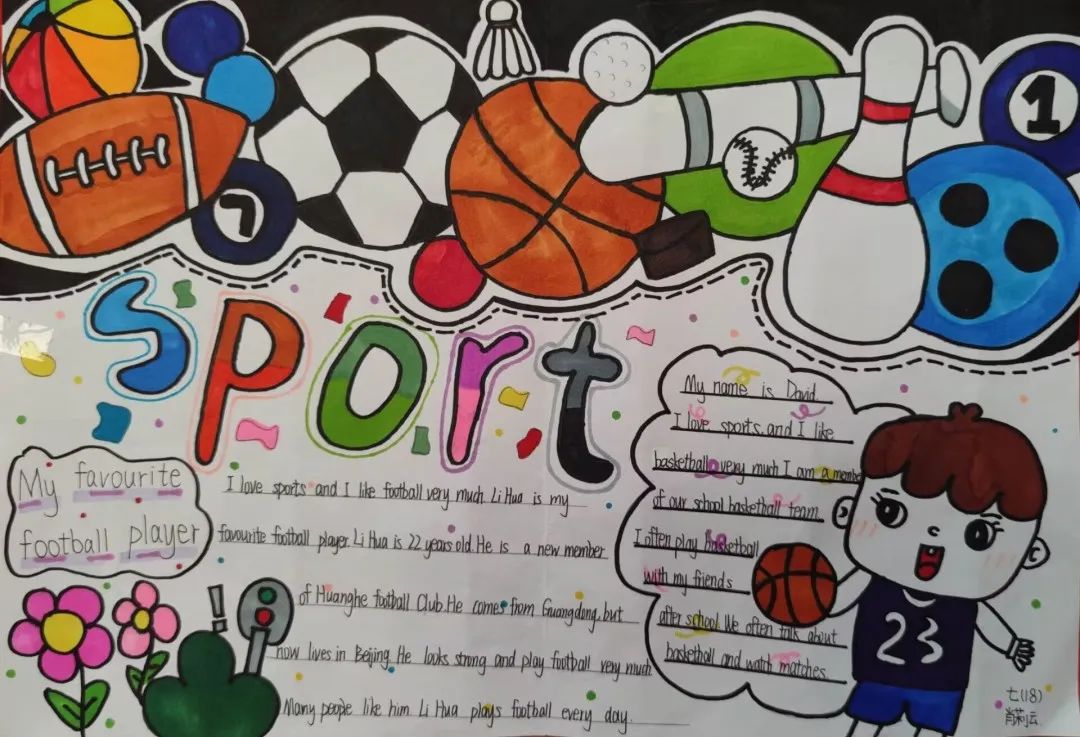 1
7
Sport
My favourite
football player
I love sports and I like football very much. Li Hua is my
favourite football player. Li Hua is 22 years old. He is a new member
of Huanghe football Club. He comes from Guangdong, but
now lives in Beijing. He looks strong and play football very much
Many people like him. Li Hua plays football every day.
My name is David.
I love sports. and I like
basketball very much I am a membe
of our school basketball team.
I often play basketball
with my friends
after school. We often talk about
basketball and watch matches.
23
七(18)
肖莉云